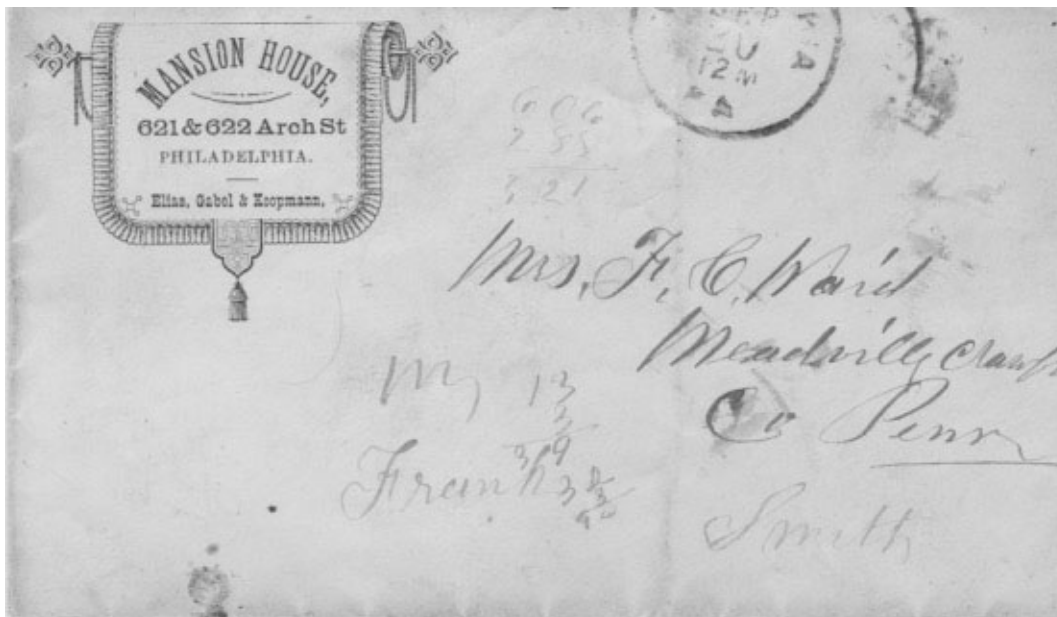 MANSION HOUSE,
621 & 622 Arch St
PHILADELPHIA.
Elias, Gabel & Koopmann,
SEP
12 M
606
21
Mrs, F, C, Ward
Meadville, Crawf
Co Penn
My 13
3
39
Frank
Smith